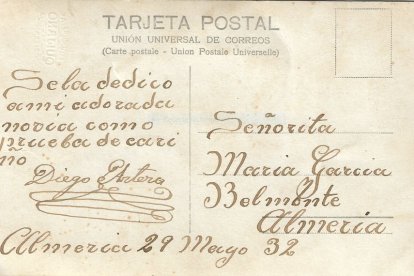 TARJETA POSTAL
UNIÓN UNIVERSAL DE CORREOS
(Carte postale - Union Postale Universelle)
Se la dedico
a mi adorada
novia como
prueba de cari
ño
Diego Artero
Señorita
Maria Garcia
Belmonte
Almeria
Almeria 29 Mayo 32